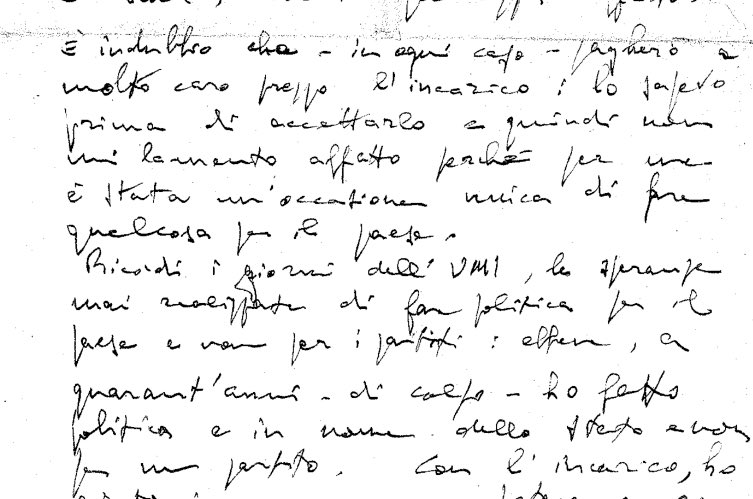 È indubbio che - in ogni caso - pagherò a
molto caro prezzo l'incarico: lo sapevo
prima di accettarlo e quindi non
mi lamento affatto perché per me
è stata un'occasione unica di fare
qualcosa per il paese.
Ricordi i giorni dell'UMI, le speranze
mai realizzate di far politica per il
paese e non per i partiti: ebbene, a
quarant'anni - di colpo - ho fatto
politica e in nome dello Stato e non
per un partito. Con l'incarico, ho